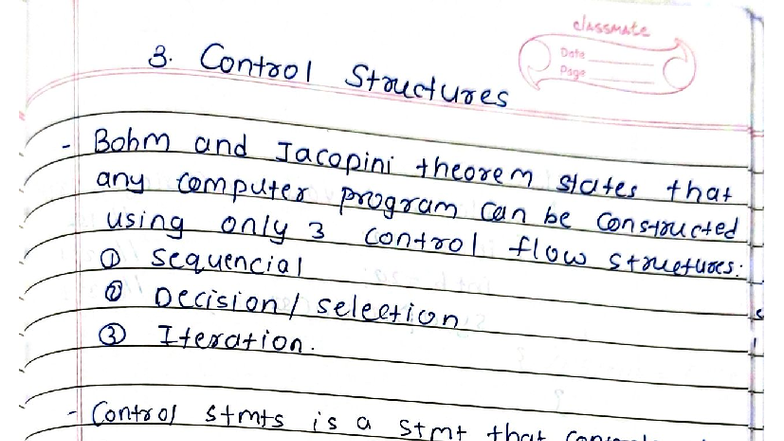 classmate
Date
Page
3. Control Structures
- Bohm and Jacopini theorem states that
any computer program can be constructed
using only 3 control flow structures:
① sequencial
② Decision/ selection
③ Iteration.
- Control stmts is a stmt that